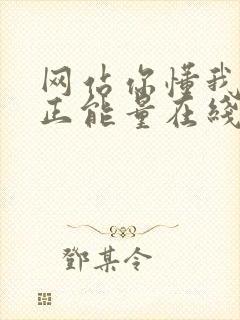 网站你懂我
正能量在线
鄧某令